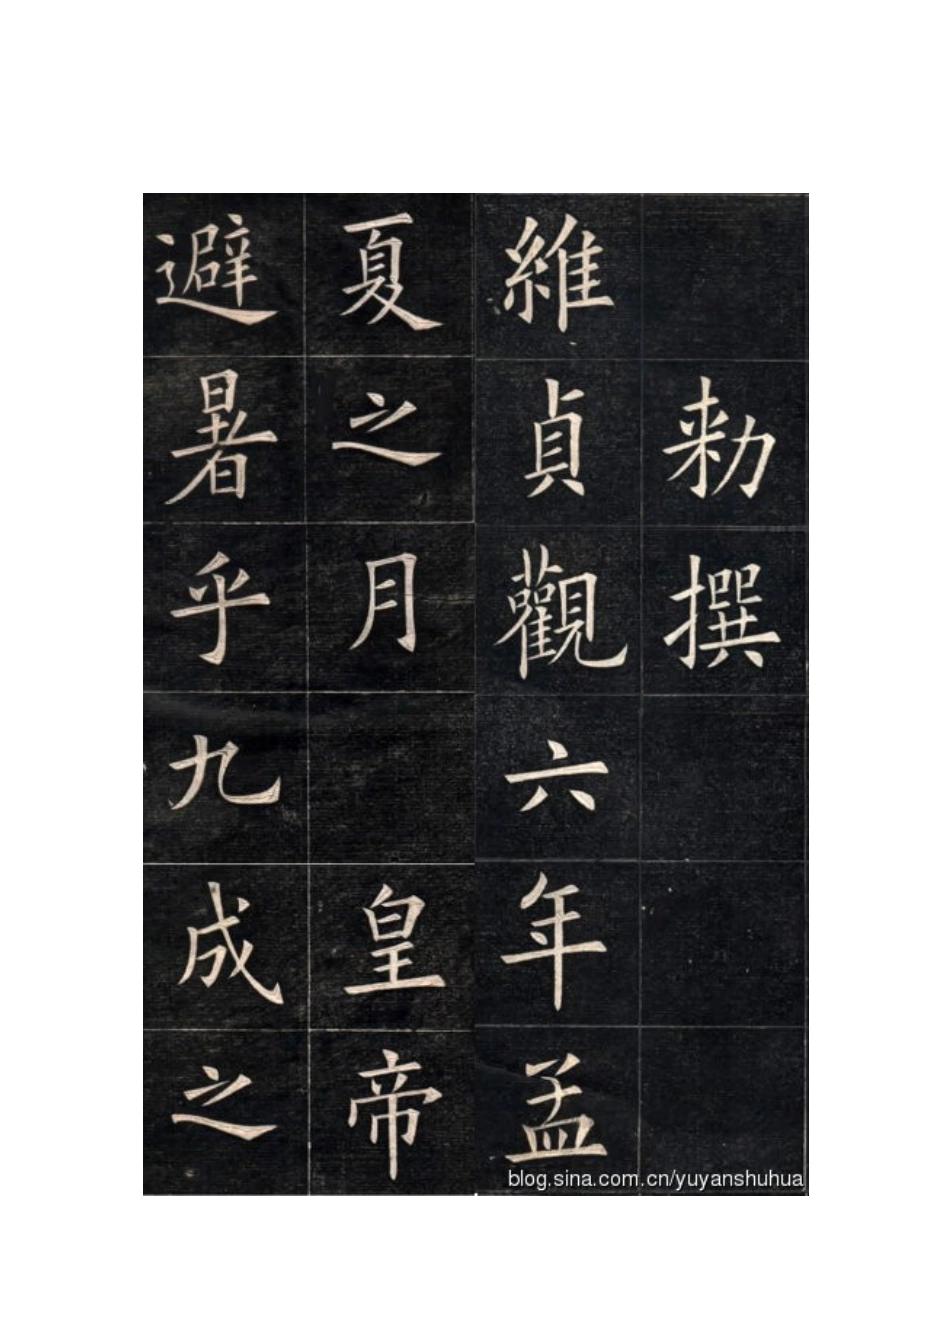 勑撰
維貞觀六年孟
夏之月 皇帝
避暑乎九成之
blog.sina.com.cn/yuyanshuhua